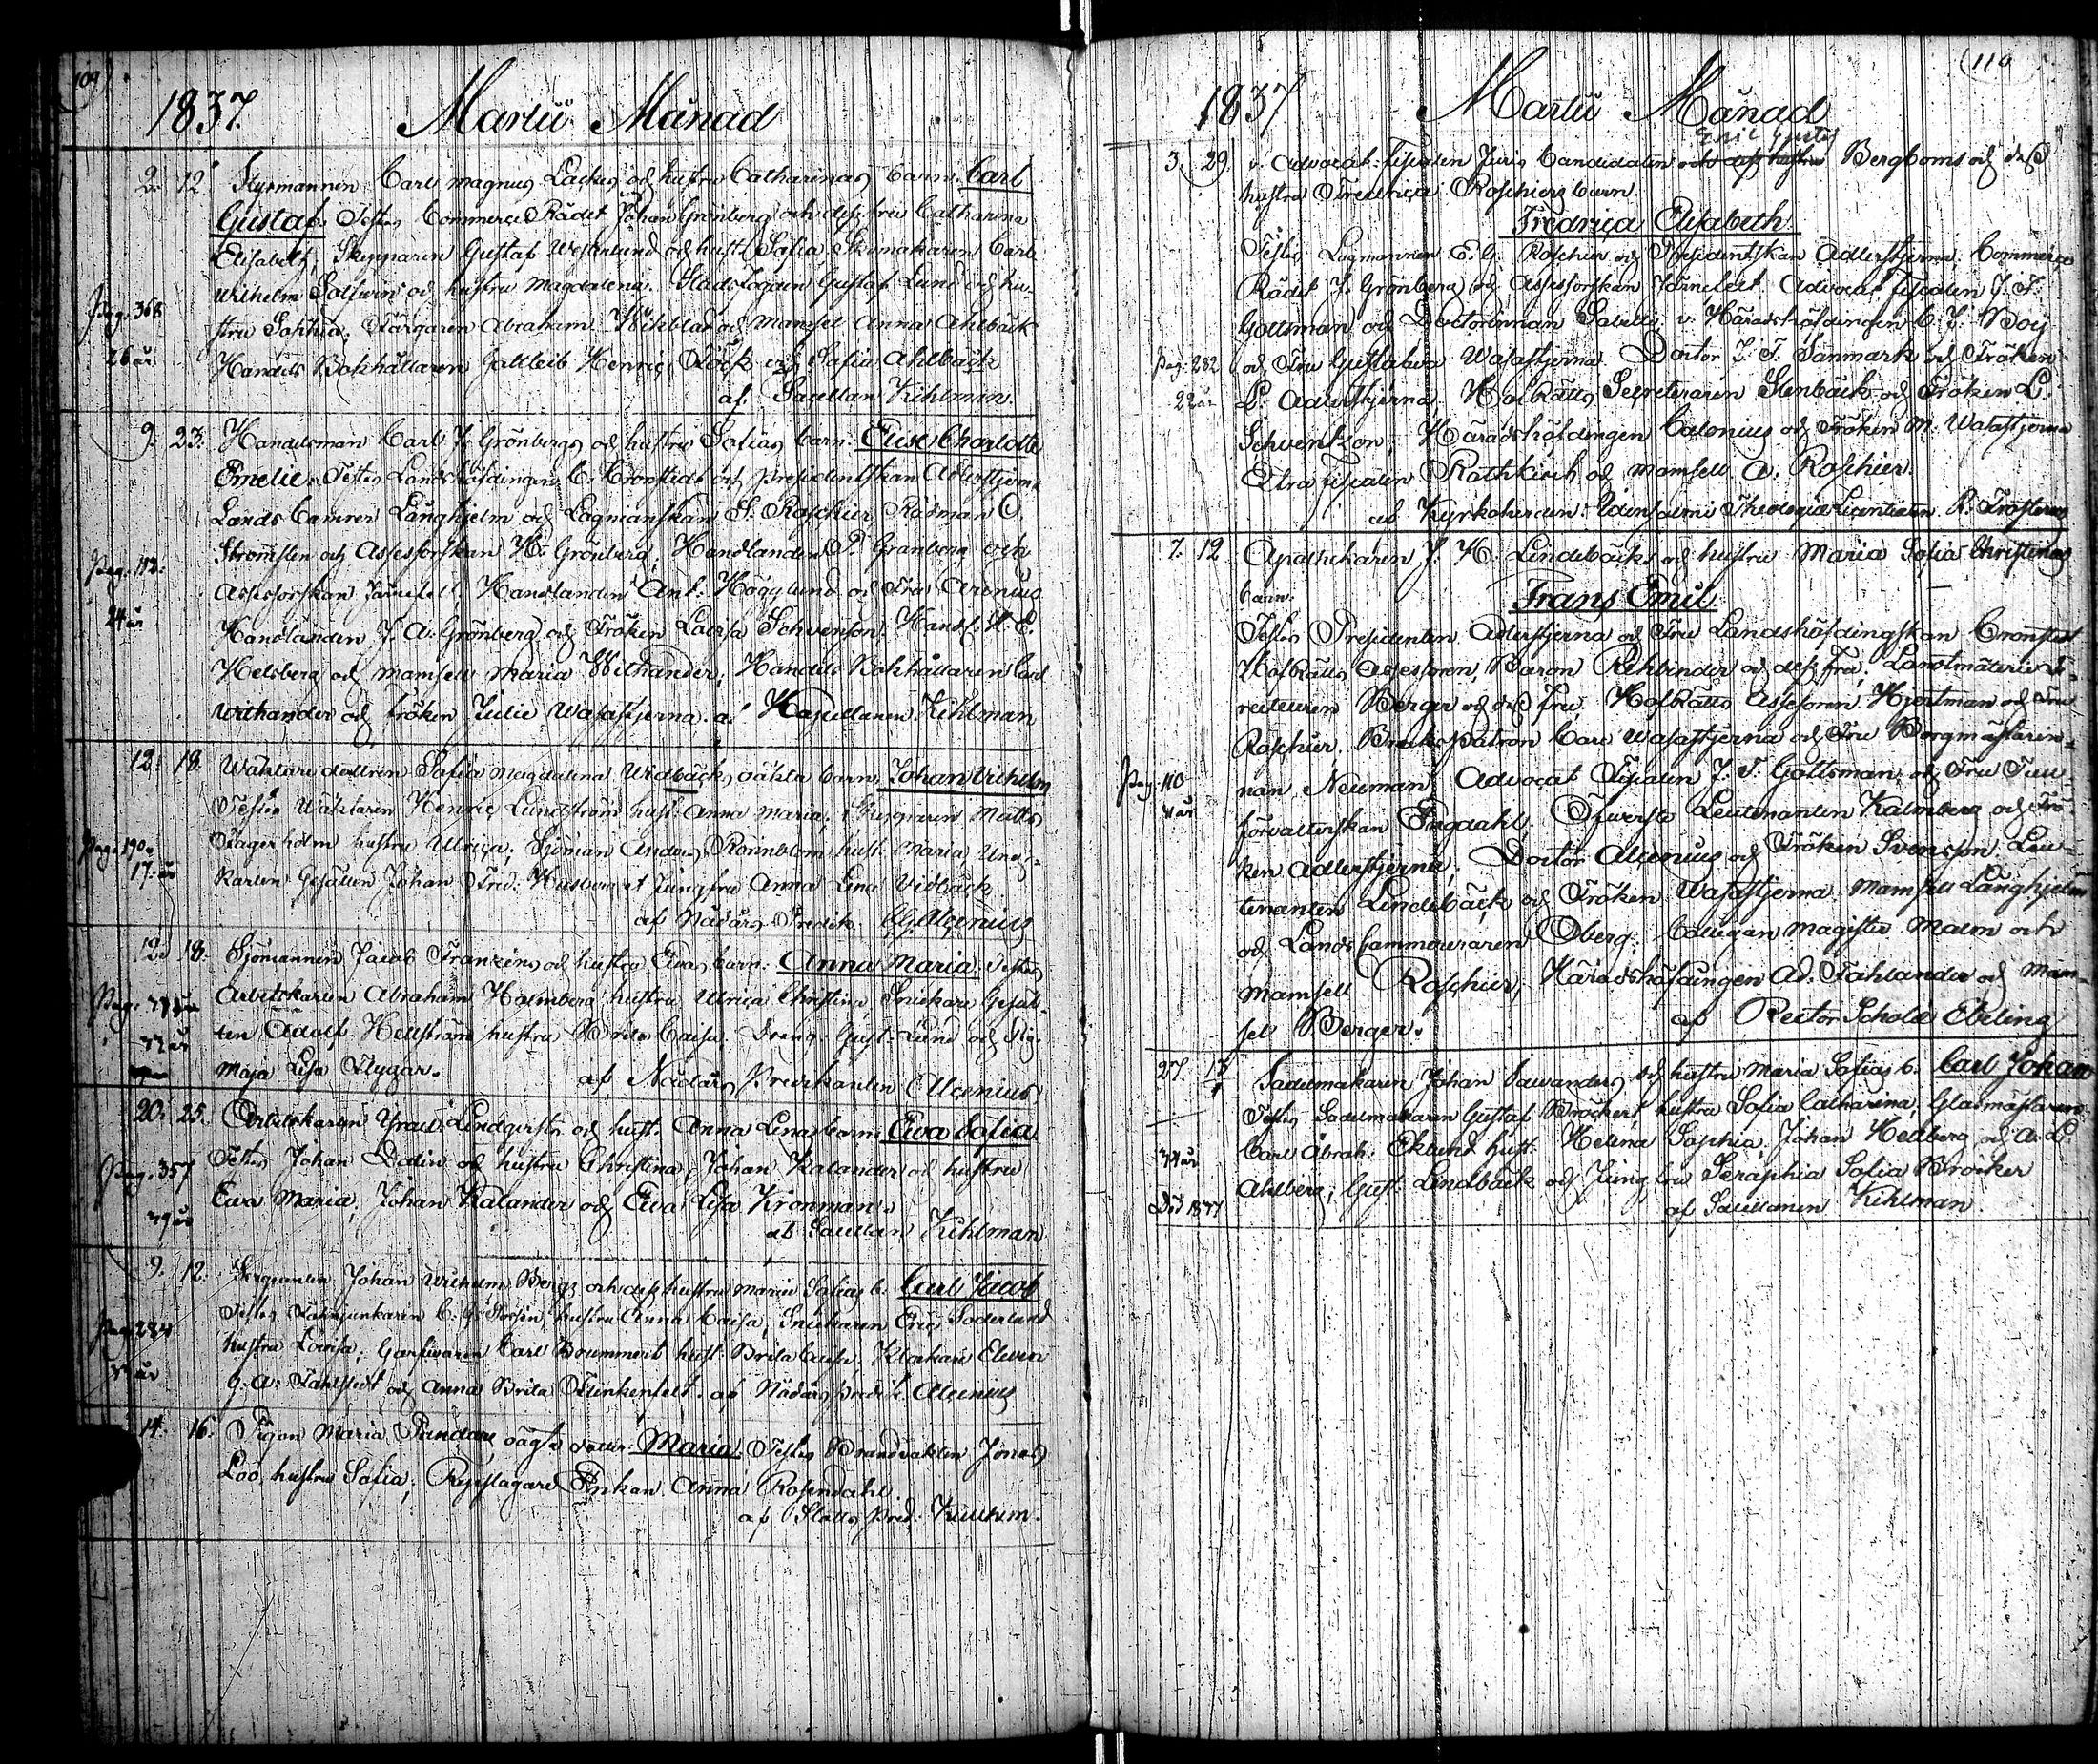 109
1837. Martii Månad
2. 12. Styrmannen Carl Magnus Lackus och hustru Catharinas barn: Carl
Gustaf. Testes Commerce Rådet Johan Grönberg och dess fru Catharina
Elisabeth, Skepparen Gustaf Westerlund och hust. Sofia, Skomakaren Carl
Pag. 368 Wilhelm och hustru Magdalena. Stadsfogden Gustaf Lund och hu-
stru Sophia, Färgaren Abraham Wikblad och Mamsel Anna Ahlbäck
26 år Handels Bokhållaren Gottleib Henric och Sofia Ahlbäck
af Sacellan Kihlman.
9. 23. Handelsman Carl J. Grönbergs och hustru Sofias barn: Elise Charlotte
Emelie. Testes Landshöfdingen C. Cronstedt och Presidentskan Adlerstjerna
Lands Camrer Långhjelm och Lagmanskan S. Roschier, Rådman C.
Pag. 112. Strömsten och Assessorskan H. Grönberg, Handlanden P. Granberg och
Assessorskan Järnefelt, Handlanden Ant. Högglund och Fru Arenius
24 år Handlanden J. A. Grönberg och Fröken Lovisa Schvenson, Handl. H. E.
Hedberg och Mamsell Maria Withander, Handels Bokhållaren Carl
Withander och Fröken Julie Wasastjerna. af Kapellanen Kihlman
12. 18. Wäktare dottren Sofia Magdalena Widbäcks oäkta barn, Johan Vilhelm
Testes Wäktaren Henric Lundström hust. Anna Maria, Skepparen Matts
Pag. 190. Fagerholm hustru Ulrica, Sjöman Anders Kornblom hust. Maria
17 år Gesällen Johan Fred. Husberg et Jungfru Anna Lena Vidbäck
af Nådårs Predik. Alcenius
12. 18. Sjömannen Jacob Franzéns och hustru Evas barn: Anna Maria. Testes
Pag. Arbetskarlen Abraham Holmberg hustru Ulrica Christina, Snickare Gesäl-
len Adolf Hellström hustru Brita Caisa, Dreng. Gust. Lund och Pig.
Maja Lisa Flygar. af Nådårs Predikanten Alcenius
20. 25. Arbetskarlen Israel Lindqvists och hust. Anna Lenas barn: Ewa Sofia
Pag. 357 Testes Johan Dalin och hustru Christina, Johan Kalander och hustru
39 år Ewa Maria, Johan Kalander och Ewa Lisa Kronman.
af Sacellan Kihlman
9. 12. Sergeanten Johan Wilhelm Bergs och dess hustru Maria Sofias b. Carl Jacob
Pag. 284 Testes Fältjunkaren C. G. hustru Anna Caisa, Snickaren Eric Söderlund
hustru Lovisa, Garfvaren Carl Brummert hust. Brita Caisa, Klockare Eleven
G. A. Fahlstedt och Anna Brita Flinkenfelt. af Nådårs Predik. Alcenius
14. 16. Pigan Maria oägta dotter: Maria. Testes Brandvakten Jonas
Loo, hustru Sofia, Repslagare Enkan Anna Rosendahl
af Slotts Pred.
110
1837 Martii Månad
Eric Gustaf
3. 29. v. Advocat Fiscalen Juris Candidaten och dess hustru Bergboms och dess
hustru Fredrica Roschiers barn.
Fredrica Elisabeth
Testes Lagmannen E. G. Roschier och Presidentskan Adlerstjerna. Commerce
Rådet J. Grönberg och Assessorskan Järnefelt. Advocat Fiscalen J. F.
Gottsman och Doctorinnan v. Häradshöfdingen C. J. Boÿ
Pag. 282 och Fru Gustafva Wasastjerna. Doctor J. F. Sanmark och Fröken
22 år L. Adlerstjerna. HofRätts Secreteraren Stenbäck och Fröken L.
Schventzon, Häradshöfdingen Calonius och Fröken M. Wasastjerna
Extra Fiscalen Rothkirch och Mamsell A. Roschier.
af Kyrkoherden Theologie Licentiaten
7. 12 Apothekaren J. H. Lindebäcks och hustru Maria Sofia Christinas
barn.
Frans Emil
Testes Presidenten Adlerstjerna och Fru Landshöfdingskan Cronstedt
HofRätts Assessoren, Baron Rehbinder och dess Fru, Landtmäterie Di-
recteuren Berger och dess Fru, HofRätts Assessoren Hjertman och Fru
Roschier. Bruks Patron Carl Wasastjerna och Fru Borgmästarin-
Pag. 110 nan Neuman, Advocat Fiscalen J. F. Gottsman och Fru Tull-
förvalterskan Ingdahl. Öfwerste Leutenanten Kalmberg och Frö-
ken Adlerstjerna, Doctor Alcenius och Fröken Svensson, Leu-
tenanten Lindebäck och Fröken Wasastjerna. Mamsell Långhjelm
och Lands Cammereraren Öberg. Collegan Magister Malm och
Mamsell Roschier, Häradshöfdingen Ad. Fahlander och Mam-
sel Berger. af Rector Scholæ Ebeling
27. Sadelmakaren Johan och hustru Maria Sofias b. Carl Johan
Testes Sadelmakaren Gustaf Bröcker, hustru Sofia Catharina, Glasmästaren
34 år Carl Abrah. Eklund hust. Helena Sophia, Johan Hedberg och A. L.
Ahlberg, Gust. Lindbäck och Jungfru Seraphia Sofia Bröcker
Död af Sacellanen Kihlman.